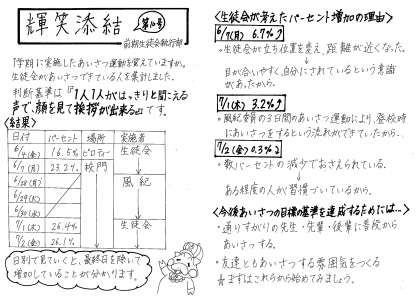 輝笑添結 第10号
前期生徒会執行部
1学期に実施したあいさつ運動を覚えていますか。
生徒会があいさつできている人を集計しました。
判断基準は『1人1人がはっきりと聞こえる
声で、顔を見て挨拶が出来る』です。
<結果>
日付 パーセント 場所 実施者
6/4(金) 16.5% ピロティー 生徒会
6/7(月) 23.2% 校門
6/28(月) 風紀
6/29(火)
6/30(水)
7/1(木) 26.4% 生徒会
7/2(金) 26.1%
日別で見ていくと、最終日を除いて
増加していることが分かります。
<生徒会が考えたパーセント増加の理由>
6/7(月) 6.7%↗
・生徒会が立ち位置を変え、距離が近くなった。
↓
目が合いやすく、自分にされているという意識
があったから。
7/1(木) 3.2%↗
・風紀委員の3日間のあいさつ運動により、登校時
にあいさつをするという流れができていたから。
7/2(金) 0.3%↘
・数パーセントの減少でおさえられている。
↓
ある程度の人が習慣づいているから。
<今後あいさつの目標の基準を達成するためには…>
・通りすがりの先生・先輩・後輩に普段から
あいさつする。
・友達ともあいさつする雰囲気をつくる
まずはこれから始めてみましょう。